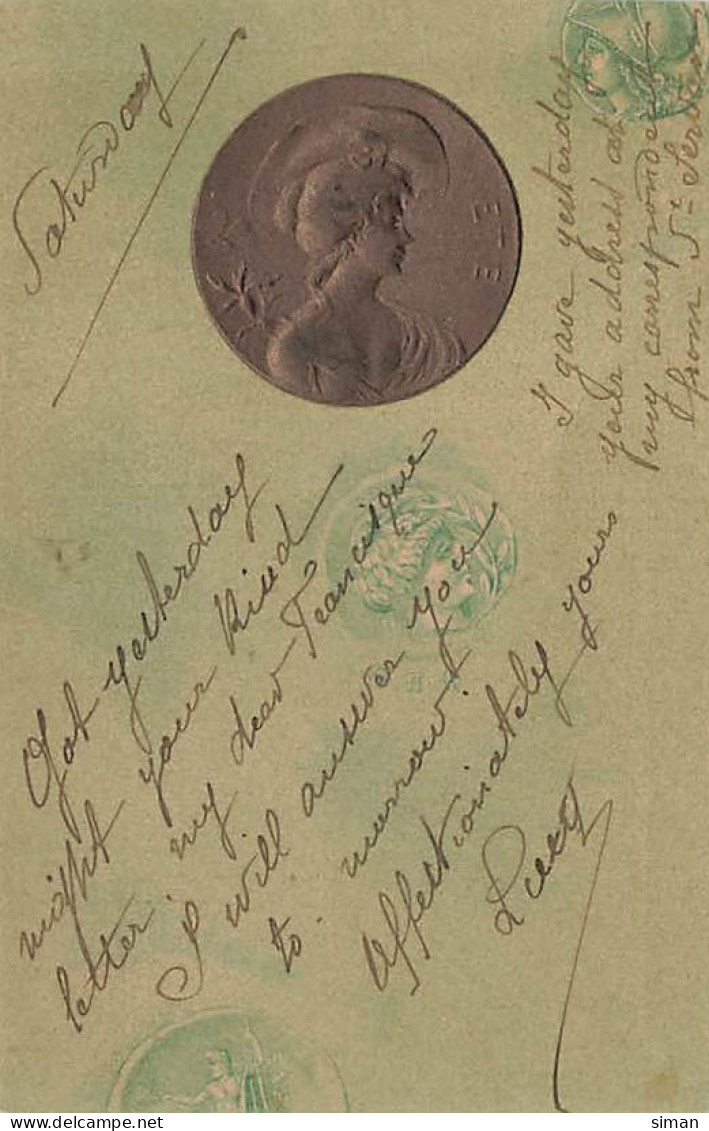 Saturday
ETE
I gave yesterday
your address at
my correspondent
from St Servan
Got yesterday
night your kind
letter my dear Francisque
I will answer you
to-morrow.
Affectionately yours
Lucy
siman